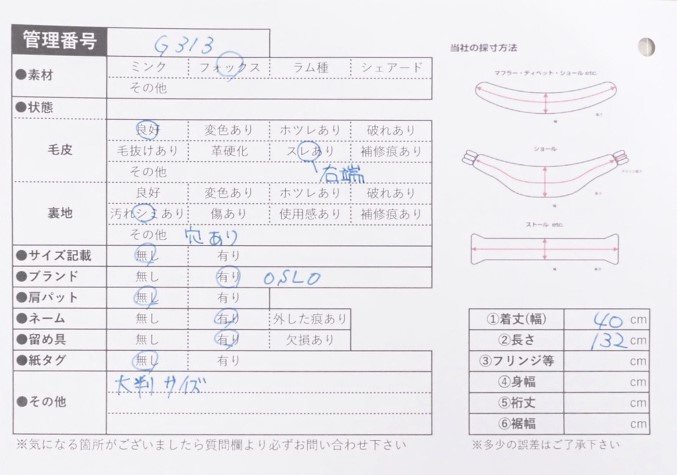 管理番号 G313
当社の採寸方法
●素材 ミンク フォックス ラム種 シェアード
その他
マフラー・ティペット・ショール etc.
●状態
毛皮 良好 変色あり ホツレあり 破れあり
毛抜けあり 革硬化 スレあり 補修痕あり
その他 右端
ショール
裏地 良好 変色あり ホツレあり 破れあり
汚れシミあり 傷あり 使用感あり 補修痕あり
その他 穴あり
ストール etc.
●サイズ記載 無し 有り
●ブランド 無し 有り OSLO
●肩パット 無し 有り
●ネーム 無し 有り 外した痕あり
●留め具 無し 有り 欠損あり
●紙タグ 無し 有り
●その他 大判サイズ
①着丈(幅) 40 cm
②長さ 132 cm
③フリンジ等 cm
④身幅 cm
⑤裄丈 cm
⑥裾幅 cm
※気になる箇所がございましたら質問欄より必ずお問い合わせ下さい
※多少の誤差はご了承下さい